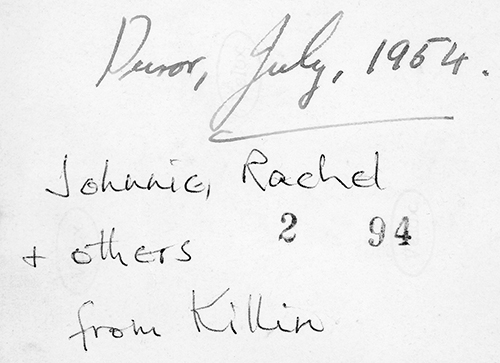 Duror, July, 1954.
Johnnie, Rachel
+ others 2 94
from Killin